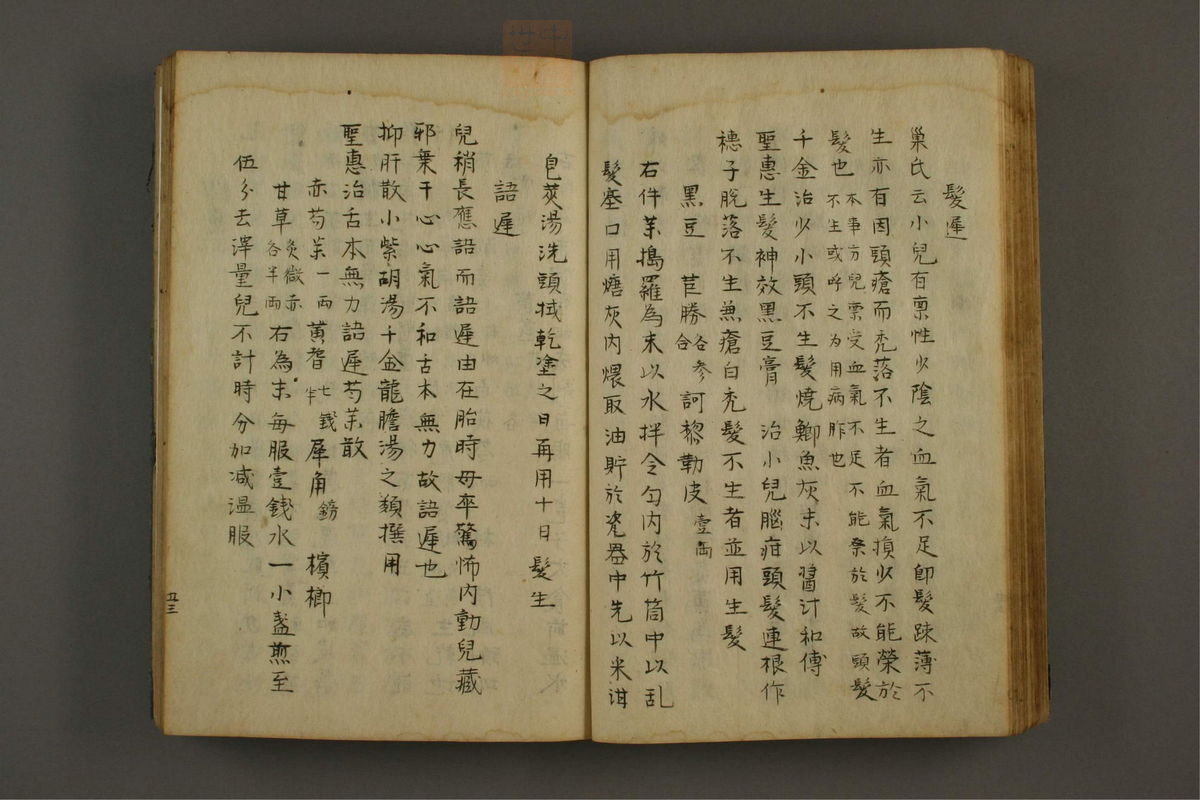 髮遲
巢氏云小兒有禀性少陰之血氣不足即髮踈薄不
生亦有因頭瘡而禿落不生者血氣損少不能榮於
髮也本事方兒禀受血氣不足不能榮於髮故頭髮
不生或呼之為用病胙也
千金治少小頭不生髮燒鯽魚灰末以醬汁和傅
聖惠生髮神效黑豆膏 治小兒腦疳頭髮連根作
穗子脫落不生兼瘡白禿髮不生者並用生髮
黑豆 苣勝各參合 訶黎勒皮壹両
右件藥搗羅為末以水拌令勻內於竹筒中以乱
髮塞口用煻灰內煨取油貯於瓷器中先以米泔
皂莢湯洗頭拭乾塗之日再用十日髮生
語遲
兒稍長應語而語遲由在胎時母卒驚怖內動兒藏
邪棄干心心氣不和舌本無力故語遲也
抑肝散小柴胡湯千金龍膽湯之類撰用
聖惠治舌本無力語遲芍藥散
赤芍藥一両 黃耆七錢半 犀角 檳榔
甘草炙微赤各半両 右為末每服壹錢水一小盞煎至
伍分去滓量兒不計時分加减温服
五三